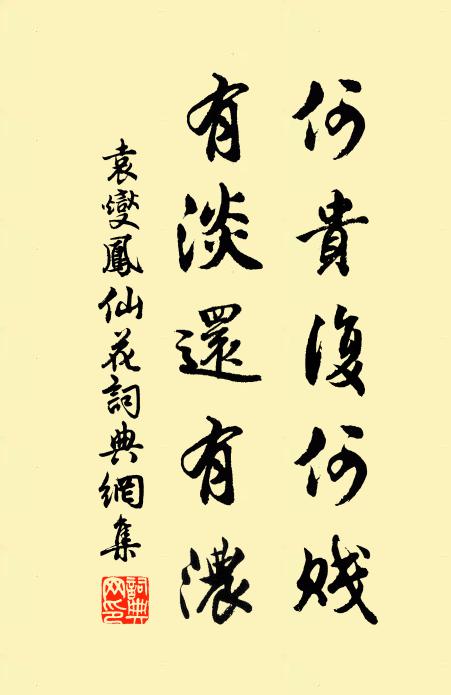 何貴復何賤
有淡還有濃
袁燮鳳仙花詞典網集
詞典網印